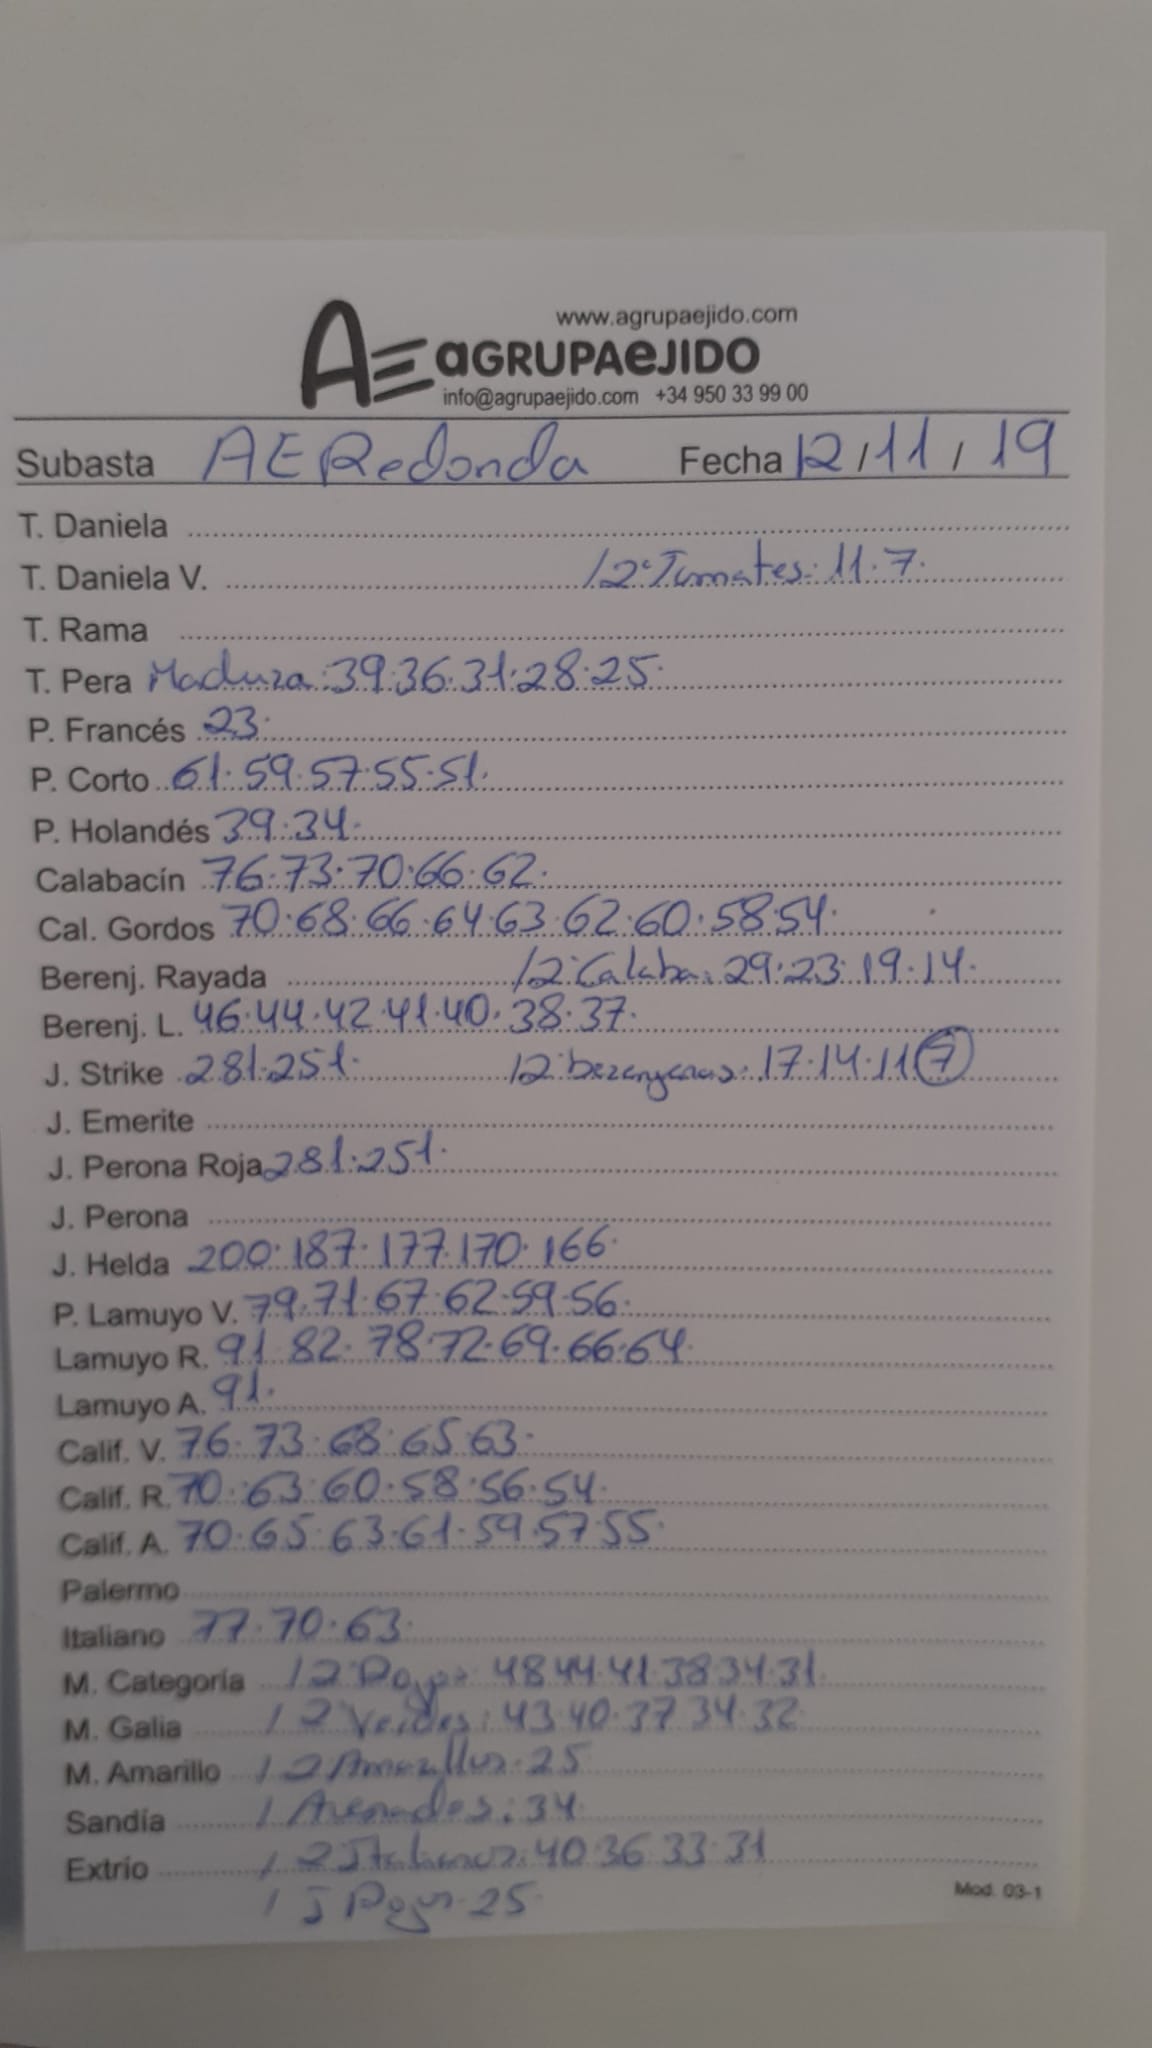 www.agrupaejido.com
AE aGRUPAeJIDO
info@agrupaejido.com +34 950 33 99 00
Subasta AE Redonda Fecha 12/11/19
T. Daniela
T. Daniela V. / 2ª Tomates: 11.7.
T. Rama
T. Pera Madura: 39.36.31.28.25.
P. Francés 23.
P. Corto 61.59.57.55.51.
P. Holandés 39.34.
Calabacín 76.73.70.66.62.
Cal. Gordos 70.68.66.64.63.62.60.58.54.
Berenj. Rayada / 2ª Calaba: 29.23.19.14.
Berenj. L. 46.44.42.41.40.38.37.
J. Strike 281.251. / 2ª berenjenas: 17.14.11 7
J. Emerite
J. Perona Roja 281.251.
J. Perona
J. Helda 200.187.177.170.166.
P. Lamuyo V. 79.71.67.62.59.56.
Lamuyo R. 91.82.78.72.69.66.64.
Lamuyo A. 91.
Calif. V. 76.73.68.65.63.
Calif. R. 70.63.60.58.56.54.
Calif. A. 70.65.63.61.59.57.55.
Palermo
Italiano 77.70.63.
M. Categoría / 2ª Rojos: 48.44.41.38.34.31.
M. Galia / 2 Verdes: 43.40.37.34.32
M. Amarillo / 2 Amarillos. 25
Sandía / Asurcados: 34.
Extrío / 2 Italianos: 40.36.33.31
/ J Rojos. 25.
Mod. 03-1